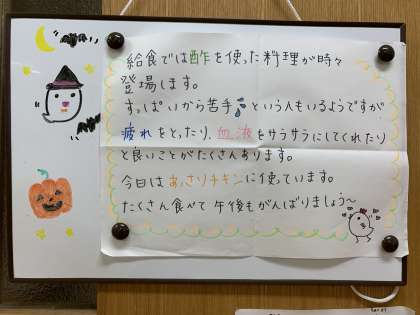 給食では酢を使った料理が時々
登場します。
すっぱいから苦手という人もいるようですが
疲れをとったり、血液をサラサラにしてくれたり
と良いことがたくさんあります。
今日はあっさりチキンに使っています。
たくさん食べて午後もがんばりましょう〜